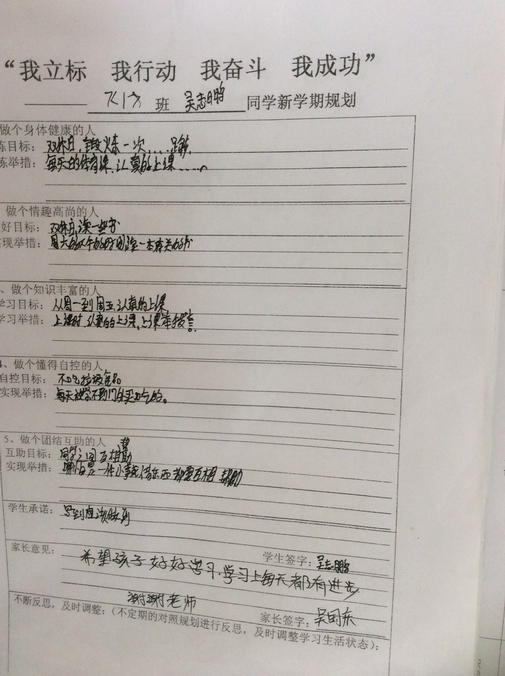 “我立标 我行动 我奋斗 我成功”
班 吴志鹏 同学新学期规划
做个身体健康的人
练目标：双休日,锻炼一次....足够
练举措：每天的体育课,认真的上课......
做个情趣高尚的人
好目标：双休日,读一些书
实现举措：周六的下午的时间,读一本有关的书
、做个知识丰富的人
学习目标：从周一到周五,认真的上课
学习举措：上课时,认真的上课,上课举手发言
4、做个懂得自控的人
自控目标：不吃垃圾食品
实现举措：每天放学不到门口买吃的。
5、做个团结互助的人
互助目标：同学之间互相帮助
实现举措：哪怕是一件小事 都要互相帮助
学生承诺：
家长意见： 学生签字：吴志鹏
希望孩子好好学习,学习上每天都有进步
谢谢老师
家长签字：吴
不断反思，及时调整：（不定期的对照规划进行反思，及时调整学习生活状态）：